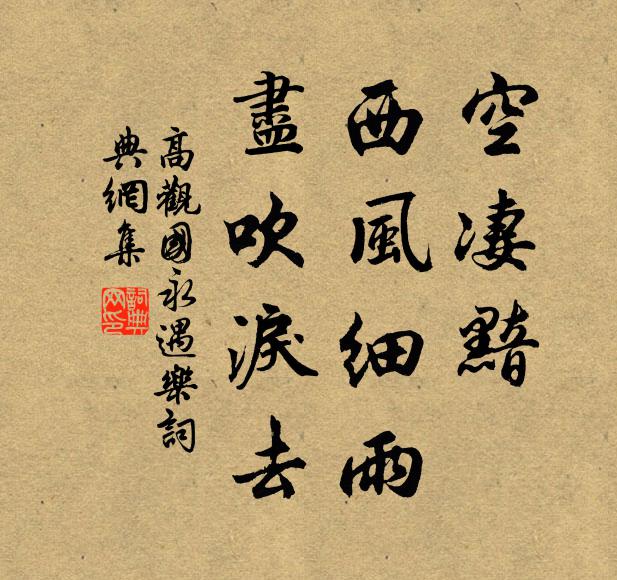 空凄黯
西風細雨
盡吹淚去
高觀國永遇樂詞
典網集
詞典網印